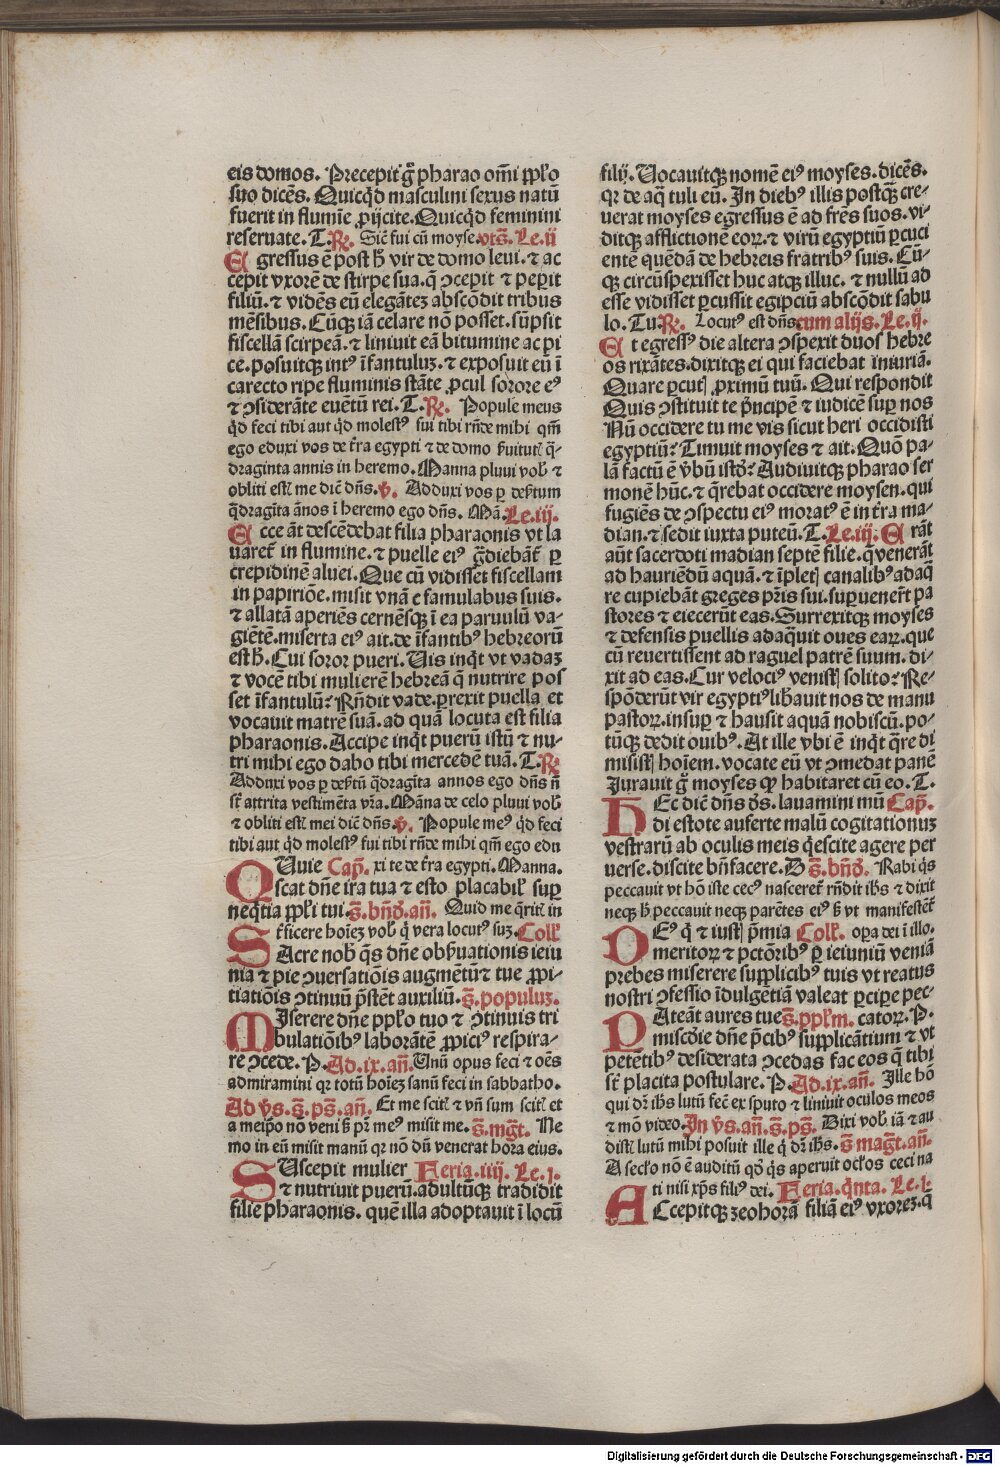 eis domos. Precepit g̃ pharao om̃i pp̃lo
suo dicẽs. Quicq̃d masculini sexus natũ
fuerit in flumĩe ꝓijcite. Quicq̃d feminini
reseruate. T. R̷. Sic̃ fui cũ moyse. vtš. Le. ij
E gressus ẽ post h̃ vir de domo leui. ⁊ ac
cepit vxorẽ de stirpe sua. q̃ ꝯcepit ⁊ peperit
filiũ. ⁊ vidẽs eũ elegãtez abscõdit tribus
mẽsibus. Cũqꝫ iã celare nõ posset. sũpsit
fiscellã scirpeã. ⁊ liniuit eã bitumine ac pi
ce. posuitqꝫ intꝰ ĩfantuluz. ⁊ exposuit eũ ĩ
carecto ripe fluminis stãte ꝓcul sorore eꝰ
⁊ ꝯsiderãte euẽtũ rei. T. R̷. Popule meus
qd̃ feci tibi aut qd̃ molestꝰ fui tibi rñde mihi qm̃
ego eduxi vos de t̃ra egypti ⁊ de domo
draginta annis in heremo. Manna plui vob̃ ⁊
obliti estĩ me dic̃ dñs. v̷. Adduxi vos ꝑ dep̃tum
q̃dragĩta ãnos ĩ heremo ego dñs. Mã. Le. iij.
E cce ãt descẽdebat filia pharaonis vt la
uaret̃ in flumine. ⁊ puelle eiꝰ g̃diebãt̃ ꝑ
crepidinẽ aluei. Que cũ vidisset fiscellam
in papiriõe. misit vnã e famulabus suis.
⁊ allatã aperiẽs cernẽsqꝫ ĩ ea paruulũ va-
giẽtẽ. miserta eiꝰ ait. de ĩfantibꝰ hebreorũ
est h̃. Cui soror pueri. Uis inq̃t vt vadaz
⁊ vocẽ tibi mulierẽ hebreã q̃ nutrire pos
set ĩfantulũ? Rñdit vade. ꝑrexit puella et
vocauit matrẽ suã. ad quã locuta est filia
pharaonis. Accipe inq̃t puerũ istũ ⁊ nu-
tri mihi ego dabo tibi mercedẽ tuã. T. R̷
Adduxi vos ꝑ dep̃tũ q̃dragĩta annos ego dñs ñ
st̃ attrita vestimẽta vr̃a. Mãna de celo plui vob̃
⁊ obliti estĩ mei dic̃ dñs. v̷. Popule meꝰ qd̃ feci
tibi aut qd̃ molestꝰ fui tibi rñde mihi qm̃ ego edu
QUuie Cap̃. xi te de t̃ra egypti. Manna.
scat dñe ira tua ⁊ esto placabil̃ suꝑ
neq̃tia pp̃li tui. š. bñd̃. añ. Quid me q̃ritĩ in
st̃ficere hoĩez vob̃ q̃ vera locutꝰ suz. Coll̃
SAcre nob̃ q̃s dñe obẽuationis ieiu
nia ⁊ pie ꝯuersatiõis augmẽtũ ⁊ tue ꝓpi-
tiatiõis ꝯtinuũ p̃stẽt auxiliũ. š. populuz.
MIserere dñe pp̃lo tuo ⁊ ꝯtinuis tri
bulatiõibꝰ laborãtẽ ꝓpiciꝰ respira-
re ꝯcede. P. Ad. ix. añ. Unũ opus feci ⁊ oẽs
admiramini qr totũ hoĩez sanũ feci in sabbatho.
Ad v̷s. š. pš. añ. Et me scitĩ ⁊ vñ sum scitĩ et
a meip̃o nõ veni š pr̃ meꝰ misit me. š. mg̃t. Ne
mo in eũ misit manũ qr nõ dũ venerat hora eius.
SUscepit mulier Feria. iiij. Le. j.
⁊ nutriuit puerũ. adultũqꝫ tradidit
filie pharaonis. quẽ illa adoptauit ĩ locũ
filij. Uocauitqꝫ nomẽ eiꝰ moyses. dicẽs.
qr de aq̃ tuli eũ. In diebꝰ illis postq̃ cre-
uerat moyses egressus ẽ ad fr̃es suos. vi-
ditqꝫ afflictionẽ eoꝝ. ⁊ virũ egyptiũ ꝑcuci
entẽ quẽdã de hebreis fratribꝰ suis. Cũ-
qꝫ circũspexisset huc atqꝫ illuc. ⁊ nullũ ad
esse vidisset ꝑcussit egipciũ abscõdit sabu
lo. Tu. R̷. Locutꝰ est dñs cum alijs. Le. ij.
E t egressꝰ die altera ꝯspexit duos hebre
os rixãtes. dixitqꝫ ei qui faciebat iniuriã.
Quare ꝑcutĩ ꝓximũ tuũ. Qui respondit
Quis ꝯstituit te p̃ncipẽ ⁊ iudicẽ suꝑ nos
Nũ occidere tu me vis sicut heri occidisti
egyptiũ? Timuit moyses ⁊ ait. Quõ pa-
lã factũ ẽ v̷bũ istd̃? Audiuitqꝫ pharao ser
monẽ hũc. ⁊ q̃rebat occidere moysen. qui
fugiẽs de ꝯspectu eiꝰ moratꝰ ẽ in t̃ra ma-
dian. ⁊ sedit iuxta puteũ. T. Le. iij. E rãt
aũt sacerdoti madian septẽ filie. q̃ venerãt
ad hauriẽdũ aquã. ⁊ ĩpletĩ canalibꝰ adaq̃
re cupiebãt greges pr̃is sui. suꝑuener̃t pa
stores ⁊ eiecerũt eas. Surrexitqꝫ moyses
⁊ defensis puellis adaq̃uit oues eaꝝ. que
cũ reuertissent ad raguel patrẽ suum. di-
xit ad eas. Cur velociꝰ venistĩ solito? Re-
spõderũt vir egyptiꝰ lib̃auit nos de manu
pastoꝝ. insuꝑ ⁊ hausit aquã nobiscũ. po-
tũqꝫ dedit ouibꝰ. At ille vbi ẽ inq̃t q̃re di
misistĩ hoĩem. vocate eũ vt ꝯmedat panẽ
Jurauit g̃ moyses ꝙ habitaret cũ eo. T.
HEc dic̃ dñs dš. lauamini mũ Cap̃.
di estote auferte malũ cogitationuz
vestrarũ ab oculis meis q̃escite agere per
uerse. discite bñfacere. D š. bñd̃. Rabi q̃s
peccauit vt hõ iste cecꝰ nasceret̃ rñdit ihš ⁊ dixit
neqꝫ h̃ peccauit neqꝫ parẽtes eiꝰ š vt manifestẽt̃
OEꝰ q̃ ⁊ iustĩ p̃mia Coll̃. oꝑa dei ĩ illo.
meritoꝝ ⁊ pctõribꝰ ꝑ ieiuniũ veniã
prebes miserere supplicibꝰ tuis vt reatus
nostri ꝯfessio ĩdulgẽtiã valeat ꝑciꝑe pec-
PAteãt aures tue š. pp̃lm. catoꝝ. P.
miscd̃ie dñe p̃cibꝰ supplicãtium ⁊ vt
petẽtibꝰ desiderata ꝯcedas fac eos q̃ tibi
st̃ placita postulare. P. Ad. ix. añ. Ille hõ
qui dr̃ ihš lutũ fec̃ ex sputo ⁊ liniuit oculos meos
⁊ mõ video. In v̷s. añ. š. pš. Dixi vob̃ iã ⁊ au
distĩ lutũ mihi posuit ille q̃ dr̃ ihš. š magt̃. añ.
A secl̃o nõ ẽ auditũ qd̃ q̃s aperuit ocl̃os ceci na
ti nisi xp̃s filiꝰ dei. Feria. q̃nta. Le. j.
ACcepitqꝫ zeohorã filiã eiꝰ vxorez. q̃
Digitalisierung gefördert durch die Deutsche Forschungsgemeinschaft - DFG